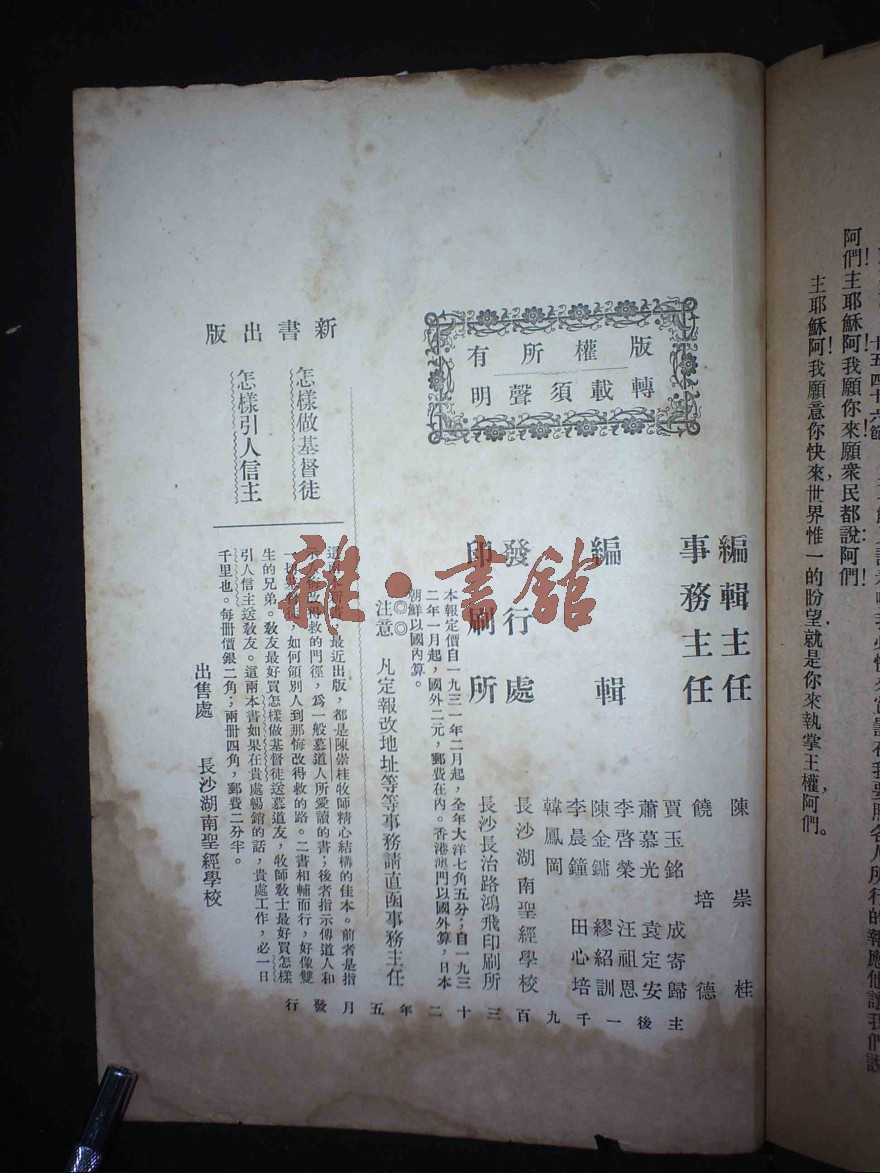 阿們!主耶穌阿!我願你來!願衆民都說阿們!
主耶穌阿!我願意你快來,世界惟一的盼望,就是你來執掌王權,阿們。
版權所有
轉載須聲明
編輯主任 陳崇桂
事務主任 饒培德
編輯
賈玉銘 成寄歸
蕭慕光 袁定安
李啓榮 汪祖恩
陳金鏞 繆紹訓
李晨鐘 田心培
韓鳳岡
發行處 長沙湖南聖經學校
印刷所 長沙長治路鴻飛印刷所
主後一千九百三十二年五月發行
本報定價自一九三一年二月起,全年大洋七角五分;自一九三
二年一月起,國外二元,郵費在內。香港澳門以國外算,日本
朝鮮以國內算。
◎◎注意 凡定報改地址等等事務請直函事務主任
新書出版
怎樣做基督徒
怎樣引人信主
最近出版,都是陳崇桂牧師精心結構的佳本。前者是指
悔改得救的門徑,爲一般慕道人所愛讀的書;後者指示傳道人和
如何領別人到那悔改得救的路。二書相輔而行,好像雙
生的兄弟。敎友最好買怎樣做基督徒送慕道友,牧師敎士最好買怎樣
引人信主送敎友。這兩本書如果在貴處暢銷的話,貴處工作,必一日
千里也。每冊價銀二角;兩冊四角,郵費二分半。
出售處 長沙湖南聖經學校
雜·書館